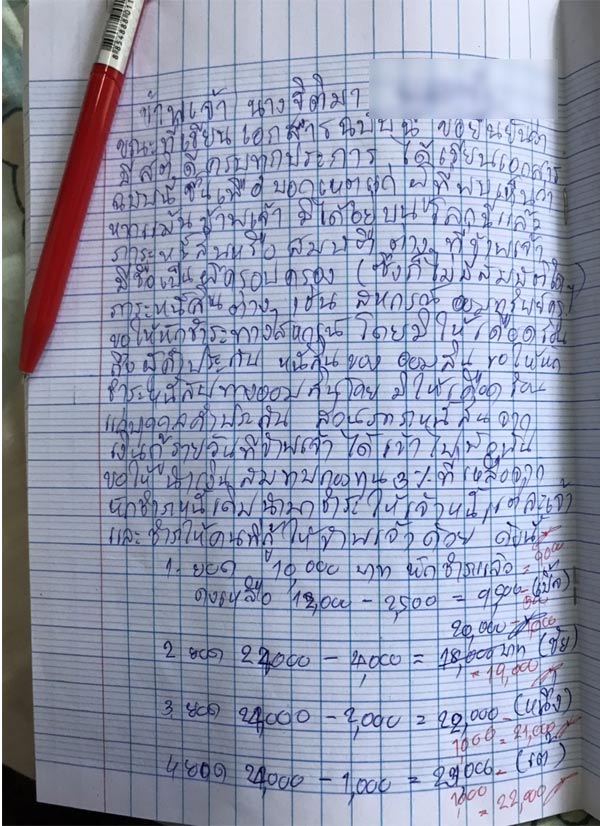 ข้าพเจ้า นางจิตติมา
ขณะที่เขียนเอกสารฉบับนี้ ขอยืนยันว่า
มีสติ ดีครบทุกประการ ได้เขียนเอกสาร
ฉบับนี้ ขึ้นเพื่อ บอกเหตุ แก่ ผู้ที่พบเห็นว่า
หากแม้น ข้าพเจ้า มิได้อยู่บนโลกนี้แล้ว
ภาระหนี้สินหรือ สมบัติ ต่างๆ ที่ข้าพเจ้า
มีชื่อเป็นผู้ครอบครอง (ซึ่งก็ไม่มีสมบัติใดๆ)
ภาระหนี้สินต่างๆ เช่น สหกรณ์ออมทรัพย์ครู
ขอให้หักชำระทางสหกรณ์ โดยมิให้เดือดร้อน
ถึง ผู้ค้ำประกัน หนี้สินของ ออมสิน ขอให้หัก
ชำระหนี้สินทางออมสินโดย มิให้เดือดร้อน
แก่บุคคลค้ำประกัน ส่วนภาระหนี้สิน จาก
เงินกู้รายวันที่ข้าพเจ้า ได้ เข้าไปพัวพัน
ขอให้ นำเงิน สมทบกองทุน 3% ที่เหลือจาก
หักชำระหนี้เดิมนำมาชำระให้เจ้าหนี้แต่ละเจ้า
และ ชำระให้คนที่กู้ให้ข้าพเจ้าด้วย ดังนี้
1. ยอด 10,000 บาท หักชำระแล้ว = 9000
คงเหลือ 12,000 - 2,500 = 9,500 - (เปิ้ล)
500
20,000 - 1,000
2 ยอด 22,000 - 4,000 = 18,000 บาท (ชัย)
= 19,000
3. ยอด 24,000 - 2,000 = 22,000 - (หนึ่ง)
1000 = 21,000
4 ยอด 24,000 - 1,000 = 23,000 - (เต้)
1,000
= 22,000